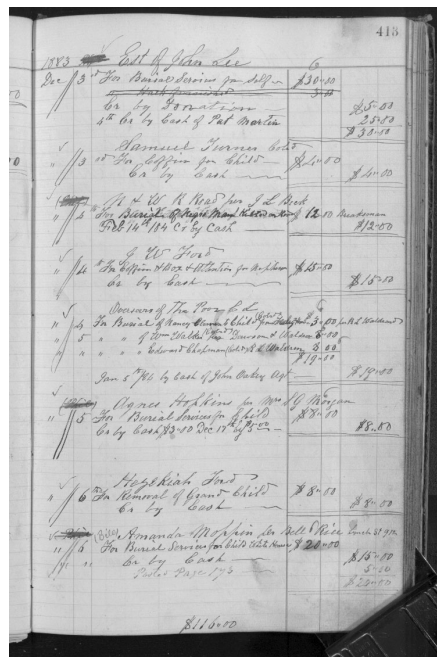 413
1883 Est of John Lee
Dec 3rd For Burial Services for Self $30-00
Cr by Donation $5-00
4th Cr by Cash of Pat Martin 25-00
$30-00
Samuel Turner Cold
" 3rd For Coffin for Child $4-00
Cr by Cash $4-00
N & W R Road per J L Beck
" 4 For Burial of Negro Man $12-00
Feb 14th 184 Cr by Cash $12-00
G W Ford
" 4th For Coffin & Box & Attention for $15-00
Cr by Cash $15-00
Overseers of The Poor C L
" 4 For Burial of Nancy & Child $3-00
" 5 " " of Wm Walker per Dawson 6-00
" " " Edward Chapman
$19-00
Jan 5th /84 by Cash of John Oakey Agt $19-00
Agnes Hopkins for Mrs J G Morgan
" 5 For Burial Services for Child $8-00
Cr by Cash $3-00 Dec 17th by $5-00 $8-00
Hezekiah Ford
" 6th For Removal of Grand Child $8-00
Cr by Cash $8-00
Amanda Moppin per Bell & Rice
" 6 For Burial Services for Child $20-00
" " Cr by Cash $15-00
$20-00
$116-00